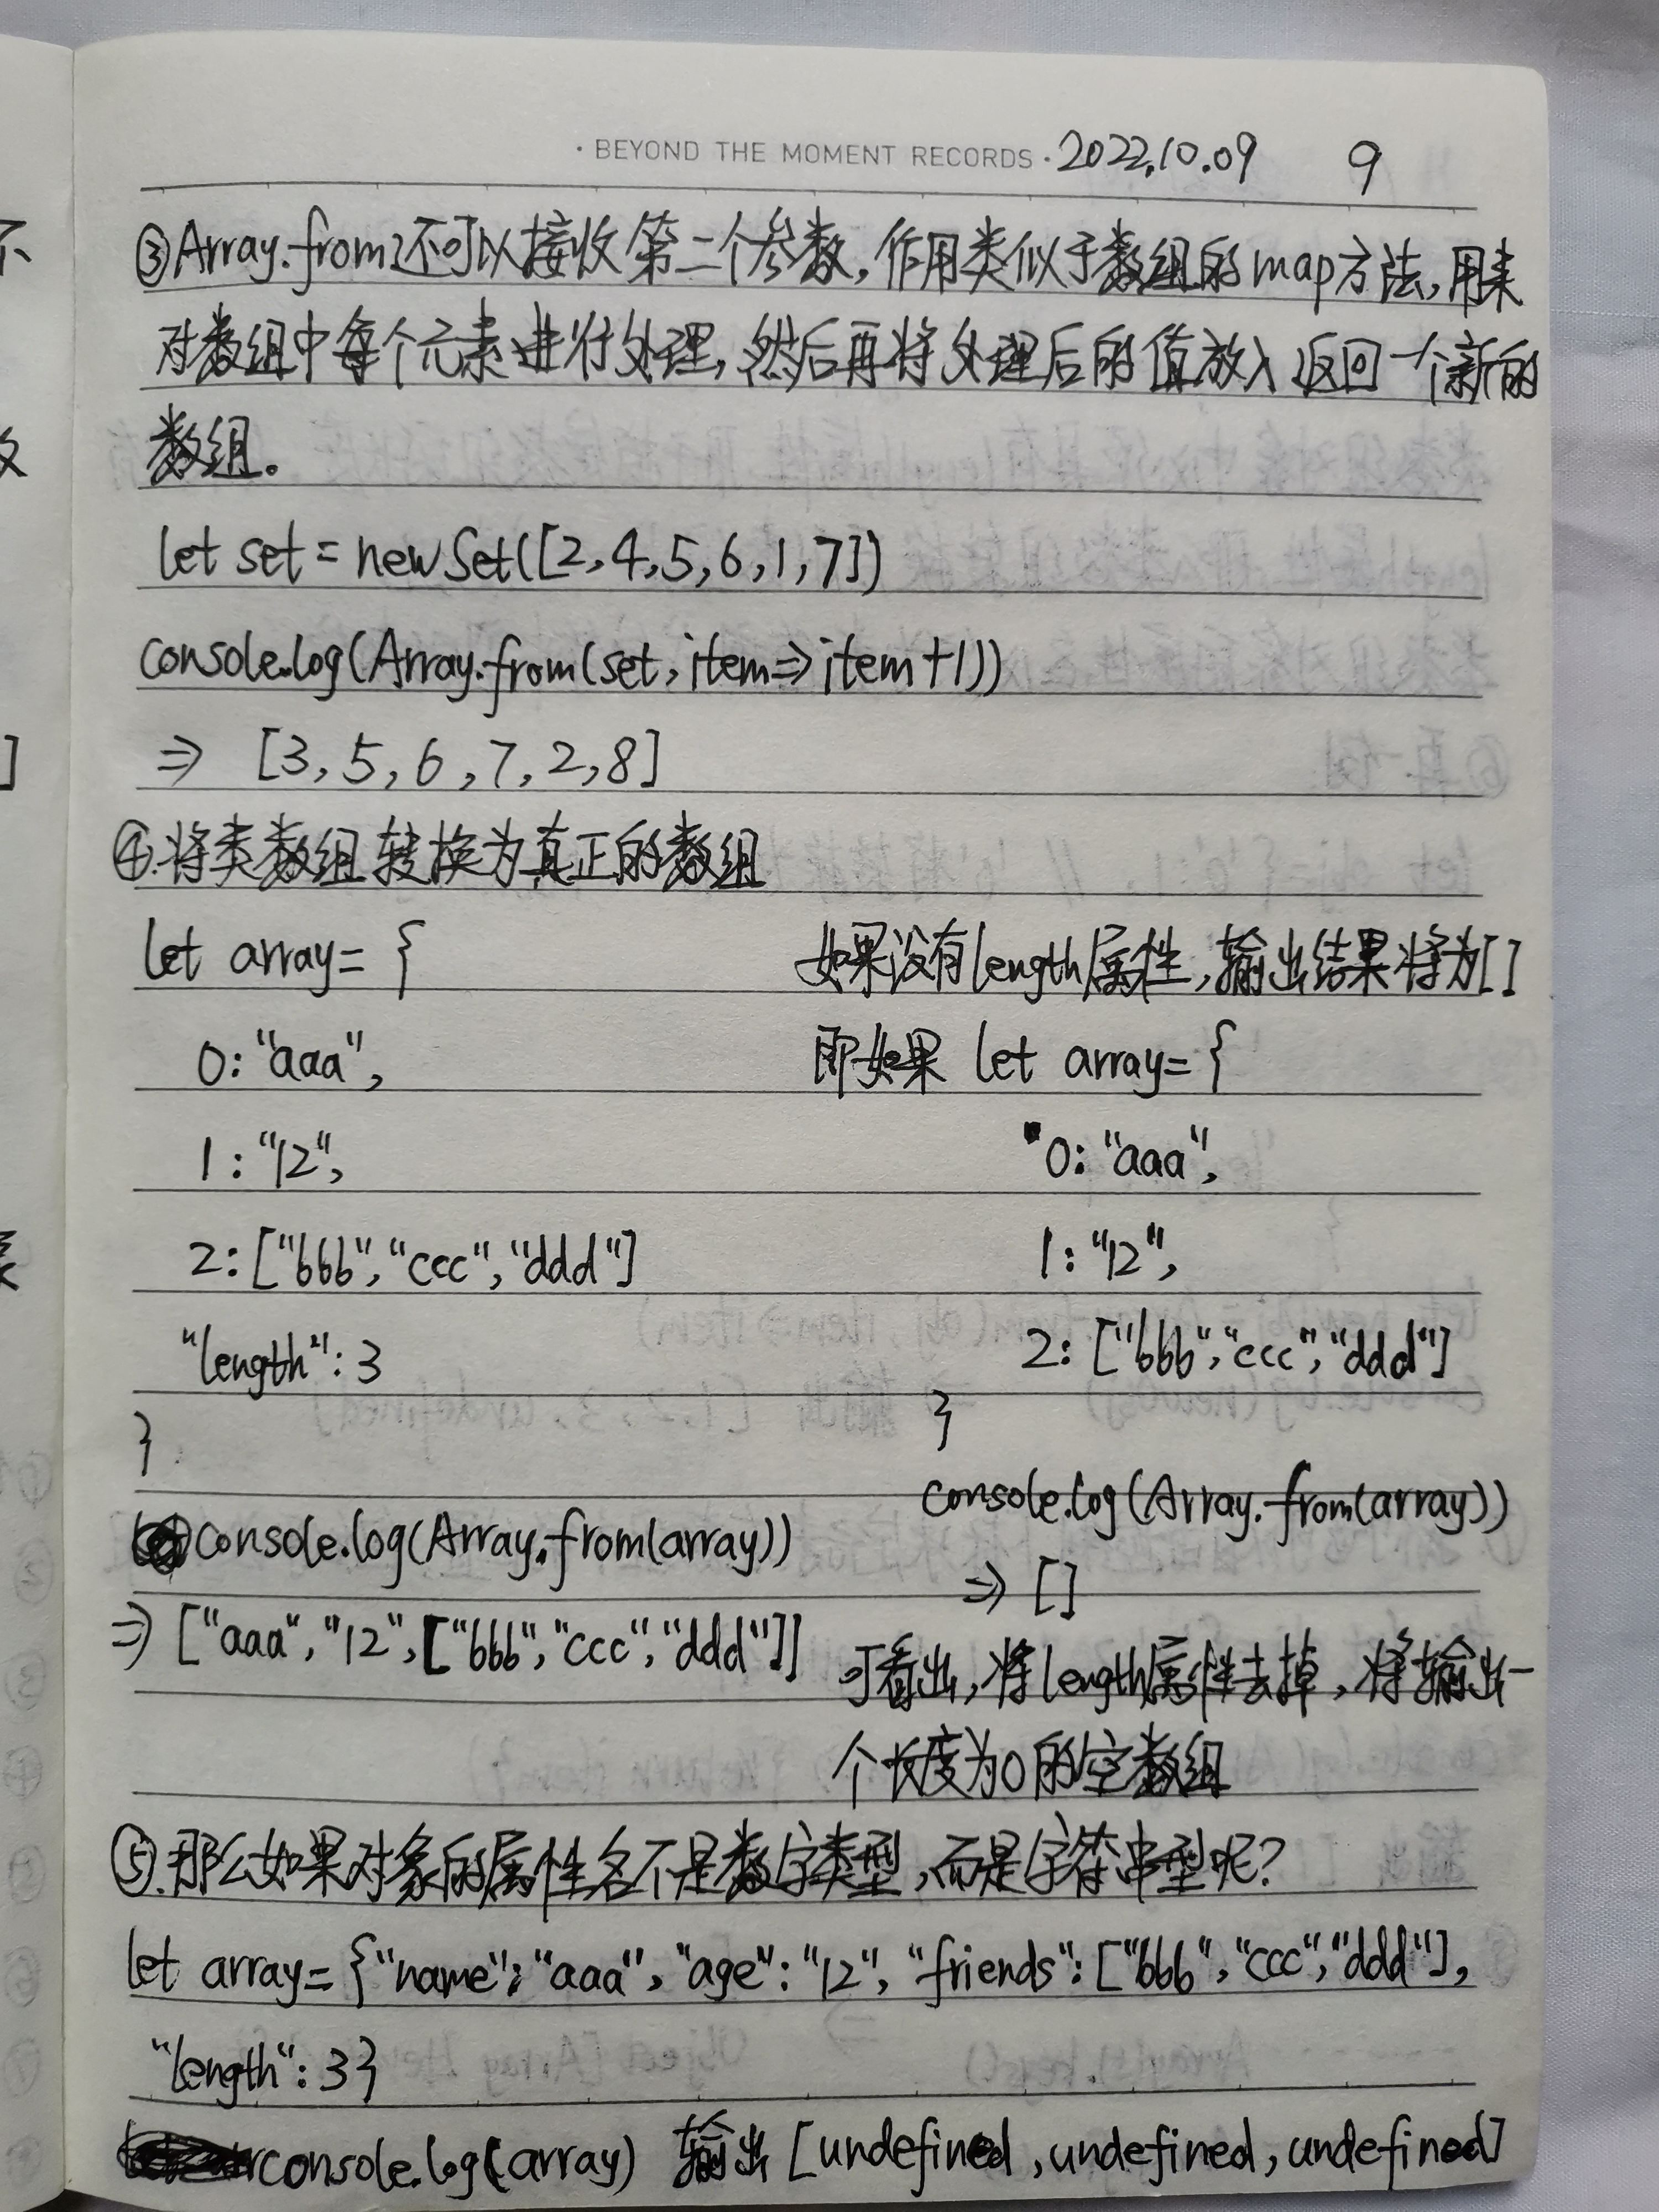 · BEYOND THE MOMENT RECORDS · 2022.10.09 9
③Array.from还可以接收第二个参数,作用类似于数组的map方法,用来
对数组中每个元素进行处理,然后再将处理后的值放入返回一个新的
数组。
let set = new Set([2,4,5,6,1,7])
console.log(Array.from(set,item=>item+1))
=> [3,5,6,7,2,8]
④.将类数组转换为真正的数组
let array= {
0: "aaa",
1: "12",
2: ["bbb","ccc","ddd"]
"length": 3
}
console.log(Array.from(array))
=> ["aaa","12",["bbb","ccc","ddd"]]
如果没有length属性,输出结果将为[]
即如果 let array= {
0: "aaa",
1: "12",
2: ["bbb","ccc","ddd"]
}
console.log(Array.from(array))
=> []
可看出,将length属性去掉,将输出一
个长度为0的空数组
⑤.那么如果对象的属性名不是数字类型,而是字符串型呢?
let array= {"name": "aaa", "age": "12", "friends": ["bbb","ccc","ddd"],
"length": 3}
console.log(array) 输出 [undefined,undefined,undefined]